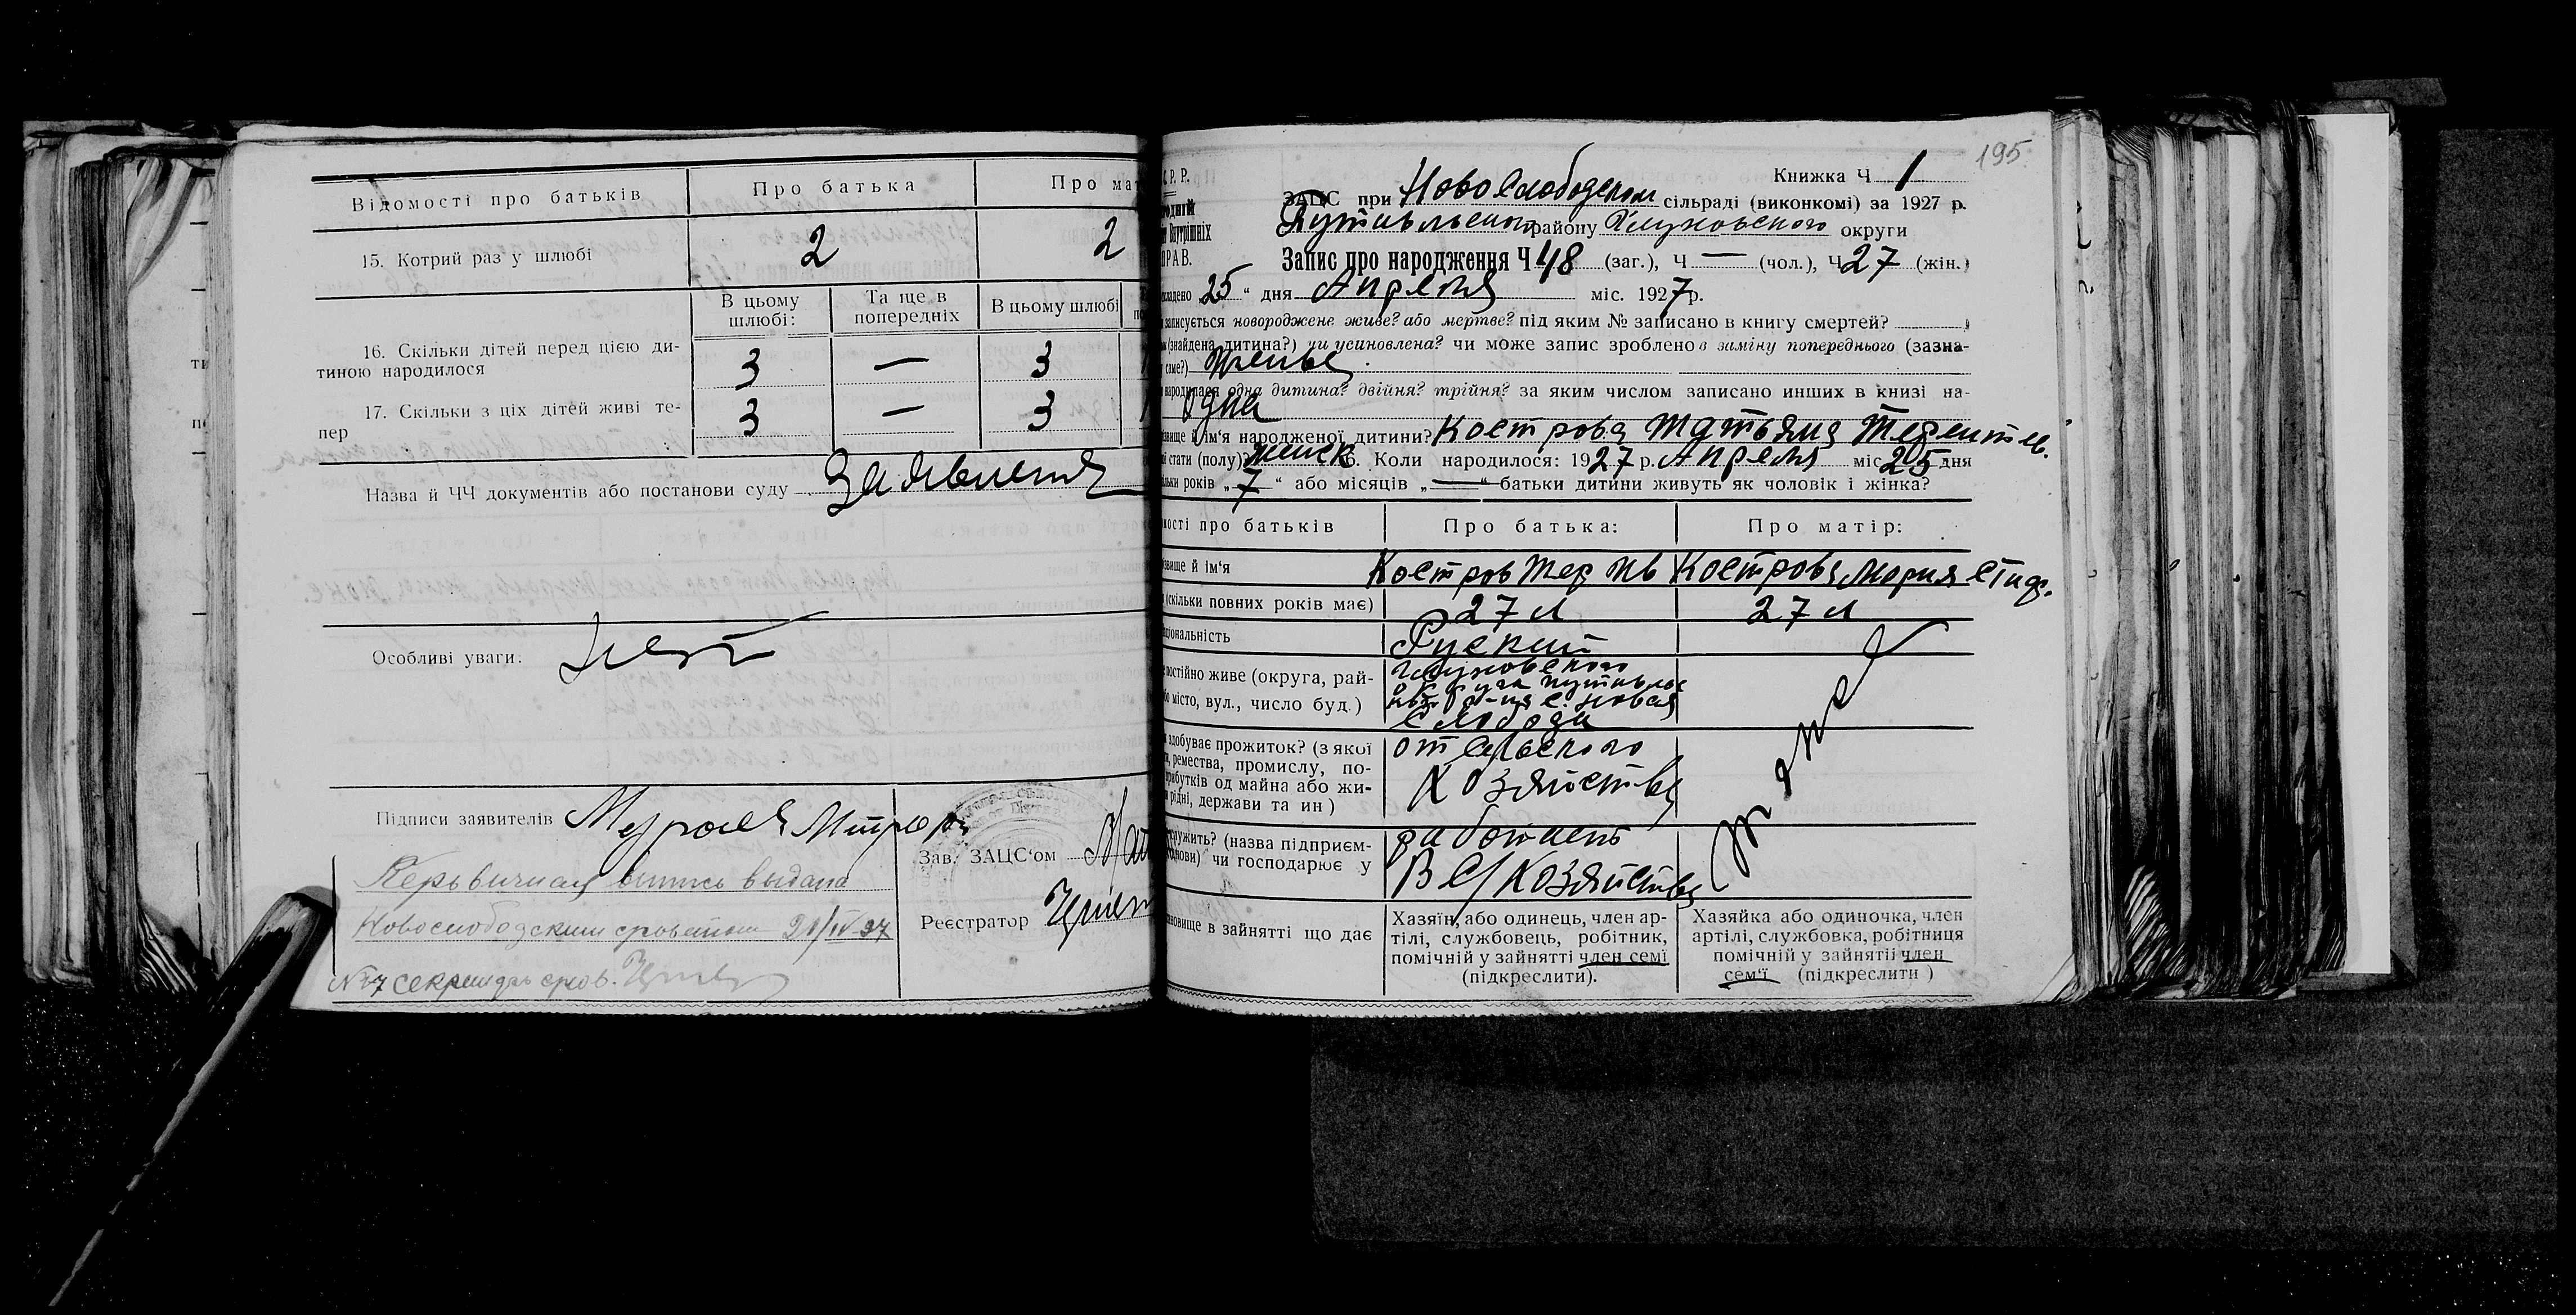 Відомості про батьків
Про батька
Про мат
15. Котрий раз у шлюбі
2
2
В цьому шлюбі:
Та ще в попередніх
В цьому шлюбі
16. Скільки дітей перед цією ди-
тиною народилося
3
—
3
17. Скільки з ціх дітей живі те-
пер
3
—
3
Назва й ЧЧ документів або постанови суду Заявления
Особливі уваги: нет
Підписи заявителів
Зав. ЗАЦС'ом
Первичная выпись выдана
Новослободским
Реєстратор
№ 27 секретарь
195
Книжка Ч 1
Р. Р.
ЗАЦС при Новослободском сільраді (виконкомі) за 1927 р.
Внутрішніх
Путивльского району Глуховского округи
ПРАВ.
Запис про народження Ч 48 (заг.), Ч — (чол.), Ч 27 (жін.)
кладено „25“ дня Апреля міс. 1927 р.
записується новороджене живе? або мертве? під яким № записано в книгу смертей?
(знайдена дитина?) чи усиновлена? чи може запис зроблено в заміну попереднього (зазна-
саме?) живе
народилася одна дитина? двійня? трійня? за яким числом записано инших в книзі на-
одна
звище й ім'я народженої дитини? Кострова Татьяна Терентьев.
стати (полу) женск 6. Коли народилося: 1927 р. Апреля міс 25 дня
льки років „7“ або місяців „—“ батьки дитини живуть як чоловік і жінка?
мості про батьків
Про батька:
Про матір:
звище й ім'я
Костров Тер Ив
Кострова Мария
(скільки повних років має)
27 л
27 л
ціональність
Руский
постійно живе (округа, рай-
місто, вул., число буд.)
Глуховского
округа Путивльс
с. Новая
Слобода
здобуває прожиток? (з якої
ремества, промислу, по-
рибутків од майна або жи-
рідні, держави та ин)
от сельского
хозяйства
служить? (назва підприєм-
нови) чи господарює у
работает
В с/хозяйства
тоже
новище в зайнятті що дає
Хазяїн, або одинець, член ар-
тілі, службовець, робітник,
помічній у зайнятті член семї
(підкреслити).
Хазяйка або одиночка, член
артілі, службовка, робітниця
помічній у зайнятіі член
сем'ї (підкреслити)